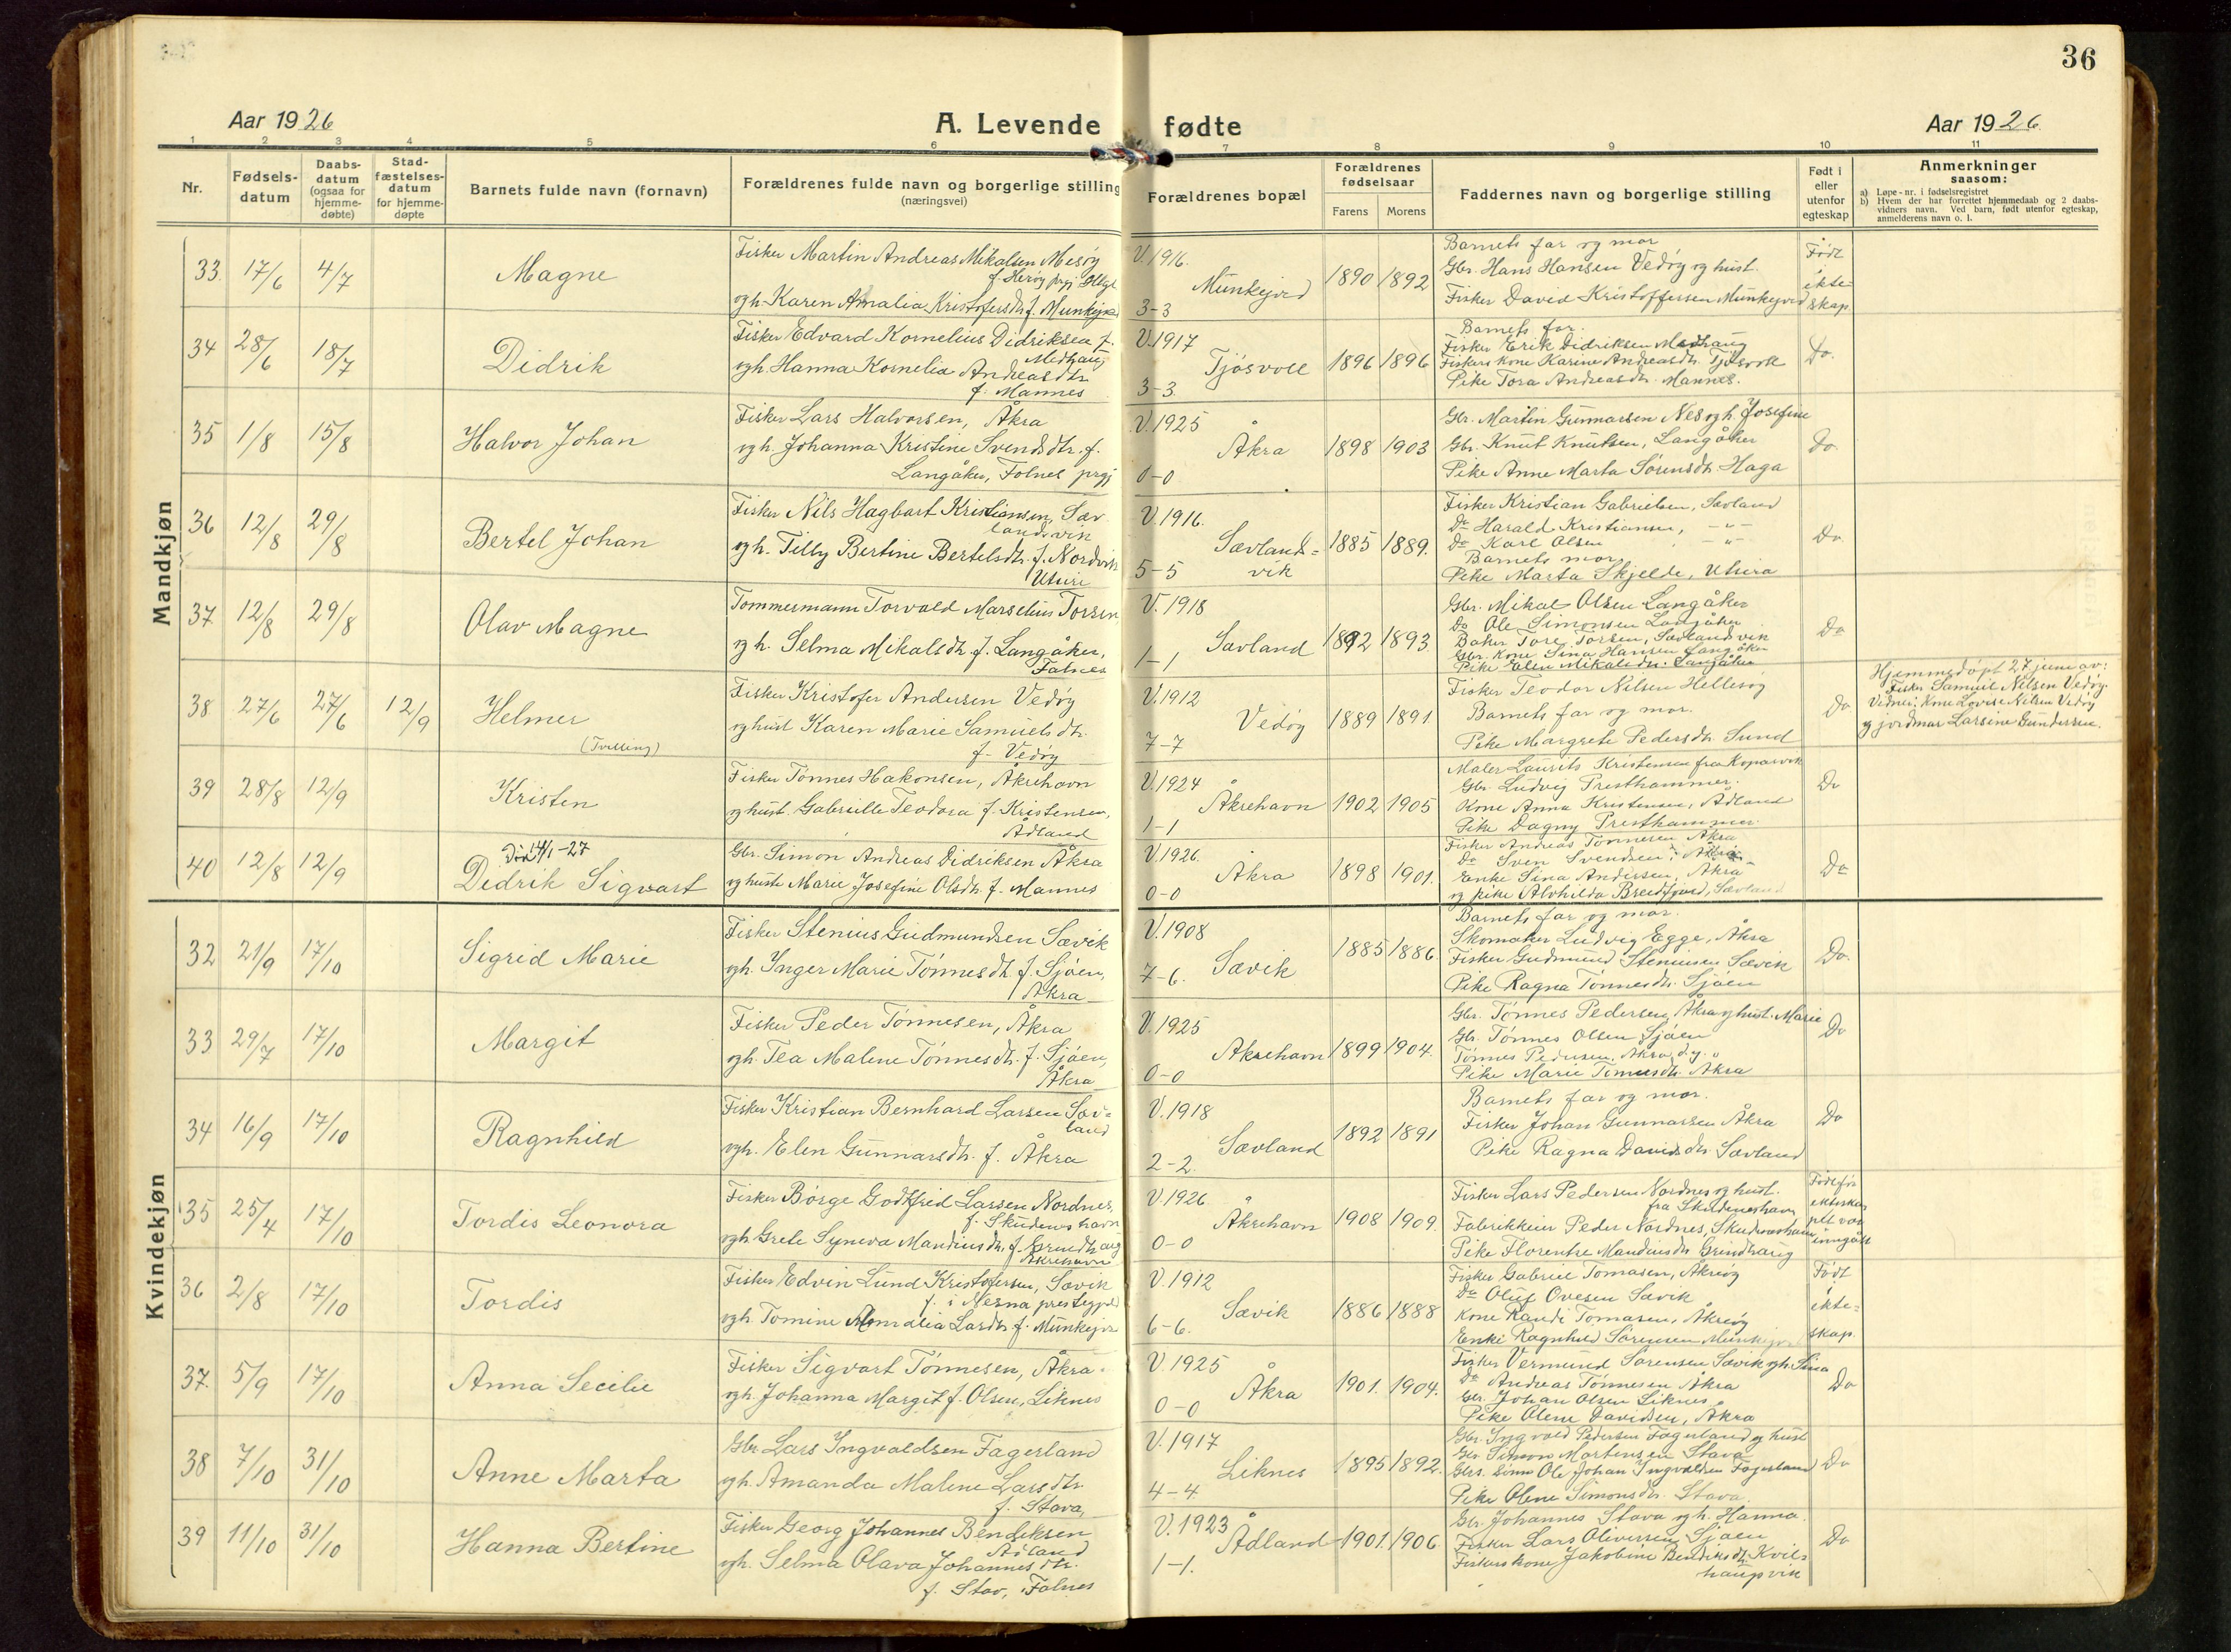 36
Aar 1926
A. Levende fødte
Aar 1926
1 2 3 4 5 6 7 8 9 10 11
Nr.
Fødsels-
datum
Daabs-
datum
(ogsaa for
hjemme-
døbte)
Stad-
fæstelses-
datum
for hjemme-
døpte
Barnets fulde navn (fornavn)
Forældrenes fulde navn og borgerlige stilling
(næringsvei)
Forældrenes bopæl
Forældrenes
fødselsaar
Farens Morens
Faddernes navn og borgerlige stilling
Født i
eller
utenfor
egteskap
Anmerkninger
saasom:
a) Løpe-nr. i fødselsregistret
b) Hvem der har forrettet hjemmedaab og 2 daabs-
vidners navn. Ved barn, født utenfor egteskap,
anmelderens navn o. l.
Mandkjøn
33 17/6 4/7
Magne
Fisker Martin Andreas Mikalsen Mesøy
f. Herøy prgj. Hlgl.
ogh. Karen Amalia Kristofersdtr. f. Munkejord
V. 1916.
Munkejord
3-3
1890 1892
Barnets far og mor
Gbr. Hans Hansen Vedøy og hust.
Fisker David Kristoffersen Munkejord
Født
i ekte-
skap.
34 28/6 18/7
Didrik
Fisker Edvard Kornelius Didriksen f.
Medhaug
ogh. Hanna Kornelia Andreasdtr.
f. Mannes
V. 1917
Tjøsvoll
3-3.
1896 1896
Barnets far.
Fisker Erik Didriksen Medhaug
Fiskers kone Karine Andreasdtr. Tjøsvoll
Pike Tora Andreasdtr. Mannes.
Do.
35 1/8 15/8
Halvor Johan
Fisker Lars Halvorsen, Åkra
ogh. Johanna Kristine Svendsdtr. f.
Langåker, Falnes prgj.
V. 1925
Åkra
0-0
1898 1903
Gbr. Martin Gunnarsen Nes ogh. Josefine
Gbr. Knut Knutsen, Langåker
Pike Anne Marta Sørensdtr. Haga
Do.
36 12/8 29/8
Bertel Johan
Fisker Nils Hagbart Kristiansen, Sæv-
landsvik
ogh. Tilly Bertine Bertelsdtr. f. Nordvik
Utsire
V. 1916.
Sævlands-
vik
5-5
1885 1889.
Fisker Kristian Gabrielsen, Sævland
Do Harald Kristiansen, -"-
Do Karl Olsen -"-
Barnets mor
Pike Marta Skjelde, Utsira
Do.
37 12/8 29/8
Olav Magne
Tømmermann Torvald Marselius Torsen
og h. Selma Mikalsdtr. f. Langåker,
Falnes
V. 1918
Sævland
1-1
1892 1893.
Gbr. Mikal Olsen Langåker
Do Ole Simonsen Langåker
Baker Tore Torsen, Sævlandsvik
Gbr. kone Sina Hansen Langåker
Pike Elen Mikalsdtr. Langåker
Do
38 27/6 27/6 12/9
Helmer
(Tvilling)
Fisker Kristofer Andersen Vedøy
og hust Karen Marie Samuelsdtr.
f. Vedøy
V. 1912
Vedøy
7-7
1889 1891.
Fisker Teodor Nilsen Hellesøy
Barnets far og mor.
Pike Margrete Pedersdtr. Sund
Do
Hjemmedøpt 27 juni av:
Fisker Samuel Nilsen Vedøy.
Vidner: Kone Lovise Nilsen Vedøy
og jordmor Larsine Gundersen.
39 28/8 12/9
Kristen
Fisker Tønnes Hakonsen, Åkrehavn
og hust. Gabrielle Teodora f. Kristensen,
Ådland
V. 1924
Åkrehavn
1-1
1902 1905
Maler Laurits Kristensen fra Kopervik
Gbr. Ludvig Presthammer.
Kone Anna Kristensen, Ådland
Pike Dagny Presthammer.
Do
40 12/8 12/9
Død 14/1-27
Didrik Sigvart
Gbr. Simon Andreas Didriksen Åkra
og hustr. Marie Josefine Olsdtr. f. Mannes
V. 1926.
Åkra
0-0
1898 1901.
Fisker Andreas Tønnesen Åkra
Do Sven Svendsen, Åkra
Enke Sina Andersen, Åkra
og pike Alvhilda Breidfjord, Sævland
Do
Kvindekjøn
32 21/9 17/10
Sigrid Marie
Fisker Stenius Gudmundsen Sævik
ogh. Inger Marie Tønnesdtr. f. Sjøen,
Åkra
V. 1908
Sævik
7-6.
1885 1886.
Barnets far og mor.
Skomaker Ludvig Egge, Åkra
Fisker Gudmund Steniusen Sævik
Pike Ragna Tønnesdtr. Sjøen
Do.
33 29/7 17/10
Margit
Fisker Peder Tønnesen, Åkra
ogh. Tea Malene Tønnesdtr. f. Sjøen,
Åkra
V. 1925
Åkrehavn
0-0
1899 1904.
Gbr. Tønnes Pedersen, Åkra og hust. Marie
Gbr. Tønnes Olsen Sjøen
Tønnes Pedersen, Åkra d.y.
Pike Marie Tønnesdtr. Åkra
Do
34 16/9 17/10
Ragnhild
Fisker Kristian Bernhard Larsen Sæv-
land
ogh. Elen Gunnarsdtr. f. Åkra
V. 1918
Sævland
2-2.
1892 1891
Barnets far og mor.
Fisker Johan Gunnarsen Åkra
Pike Ragna Davidsdtr. Sævland
Do
35 25/4 17/10
Tordis Leonora
Fisker Børge Godtfred Larsen Nordnes,
f. Skudeneshavn
ogh. Grete Syneva Mandiusdtr. f. Grindhaug
Åkrehavn
V. 1926
Åkrehavn
0-0
1908 1909.
Fisker Lars Pedersen Nordnes og hust.
fra Skudeneshavn
Fabrikkeier Peder Nordnes, Skudeneshavn
Pike Florentse Mandiusdtr. Grindhaug
Født før
ekteska-
pet var
inngått
36 2/8 17/10
Tordis
Fisker Edvin Lund Kristofersen, Sævik
f. i Nesna prestegjeld
ogh. Tomine Amalia Larsdtr. f. Munkejord
V. 1912
Sævik
6-6.
1886 1888
Fisker Gabriel Tomasen, Åkrøy
Do Oluf Ovesen Sævik
Kone Randi Tomasen, Åkrøy
Enke Ragnhild Sørensen Munkejord
Født
i ekte-
skap
37. 5/9 17/10
Anna Secilie
Fisker Sigvart Tønnesen, Åkra
ogh. Johanna Margit f. Olsen, Liknes
V. 1925
Åkra
0-0
1901. 1904.
Fisker Vermund Sørensen Sævik ogh. Sina
Do Andreas Tønnesen Åkra
Gbr. Johan Olsen Liknes
Pike Olene Davidsen, Åkra
Do
38 7/10 31/10
Anne Marta
Gbr. Lars Ingvaldsen Fagerland
ogh. Amanda Malene Larsdtr.
f. Stava,
V. 1917
Liknes
4-4
1895 1892.
Gbr. Ingvald Pedersen Fagerland og hust
Gbr. Simon Mortensen Stava
Gbrs. sønn Ole Johan Ingvaldsen Fagerland
Pike Olene Simonsdtr. Stava.
Do
39 11/10 31/10
Hanna Bertine
Fisker Georg Johannes Bendiksen
Ådland
ogh. Selma Olava Johannesdtr.
f. Stav, Falnes
V. 1923
Ådland
1-1.
1901. 1906.
Gbr. Johannes Stava ogh. Hanna.
Fisker Lars Oliversen Sjøen
Fiskers kone Jakobine Bendiksdtr. Kvil-
haugvik
Do